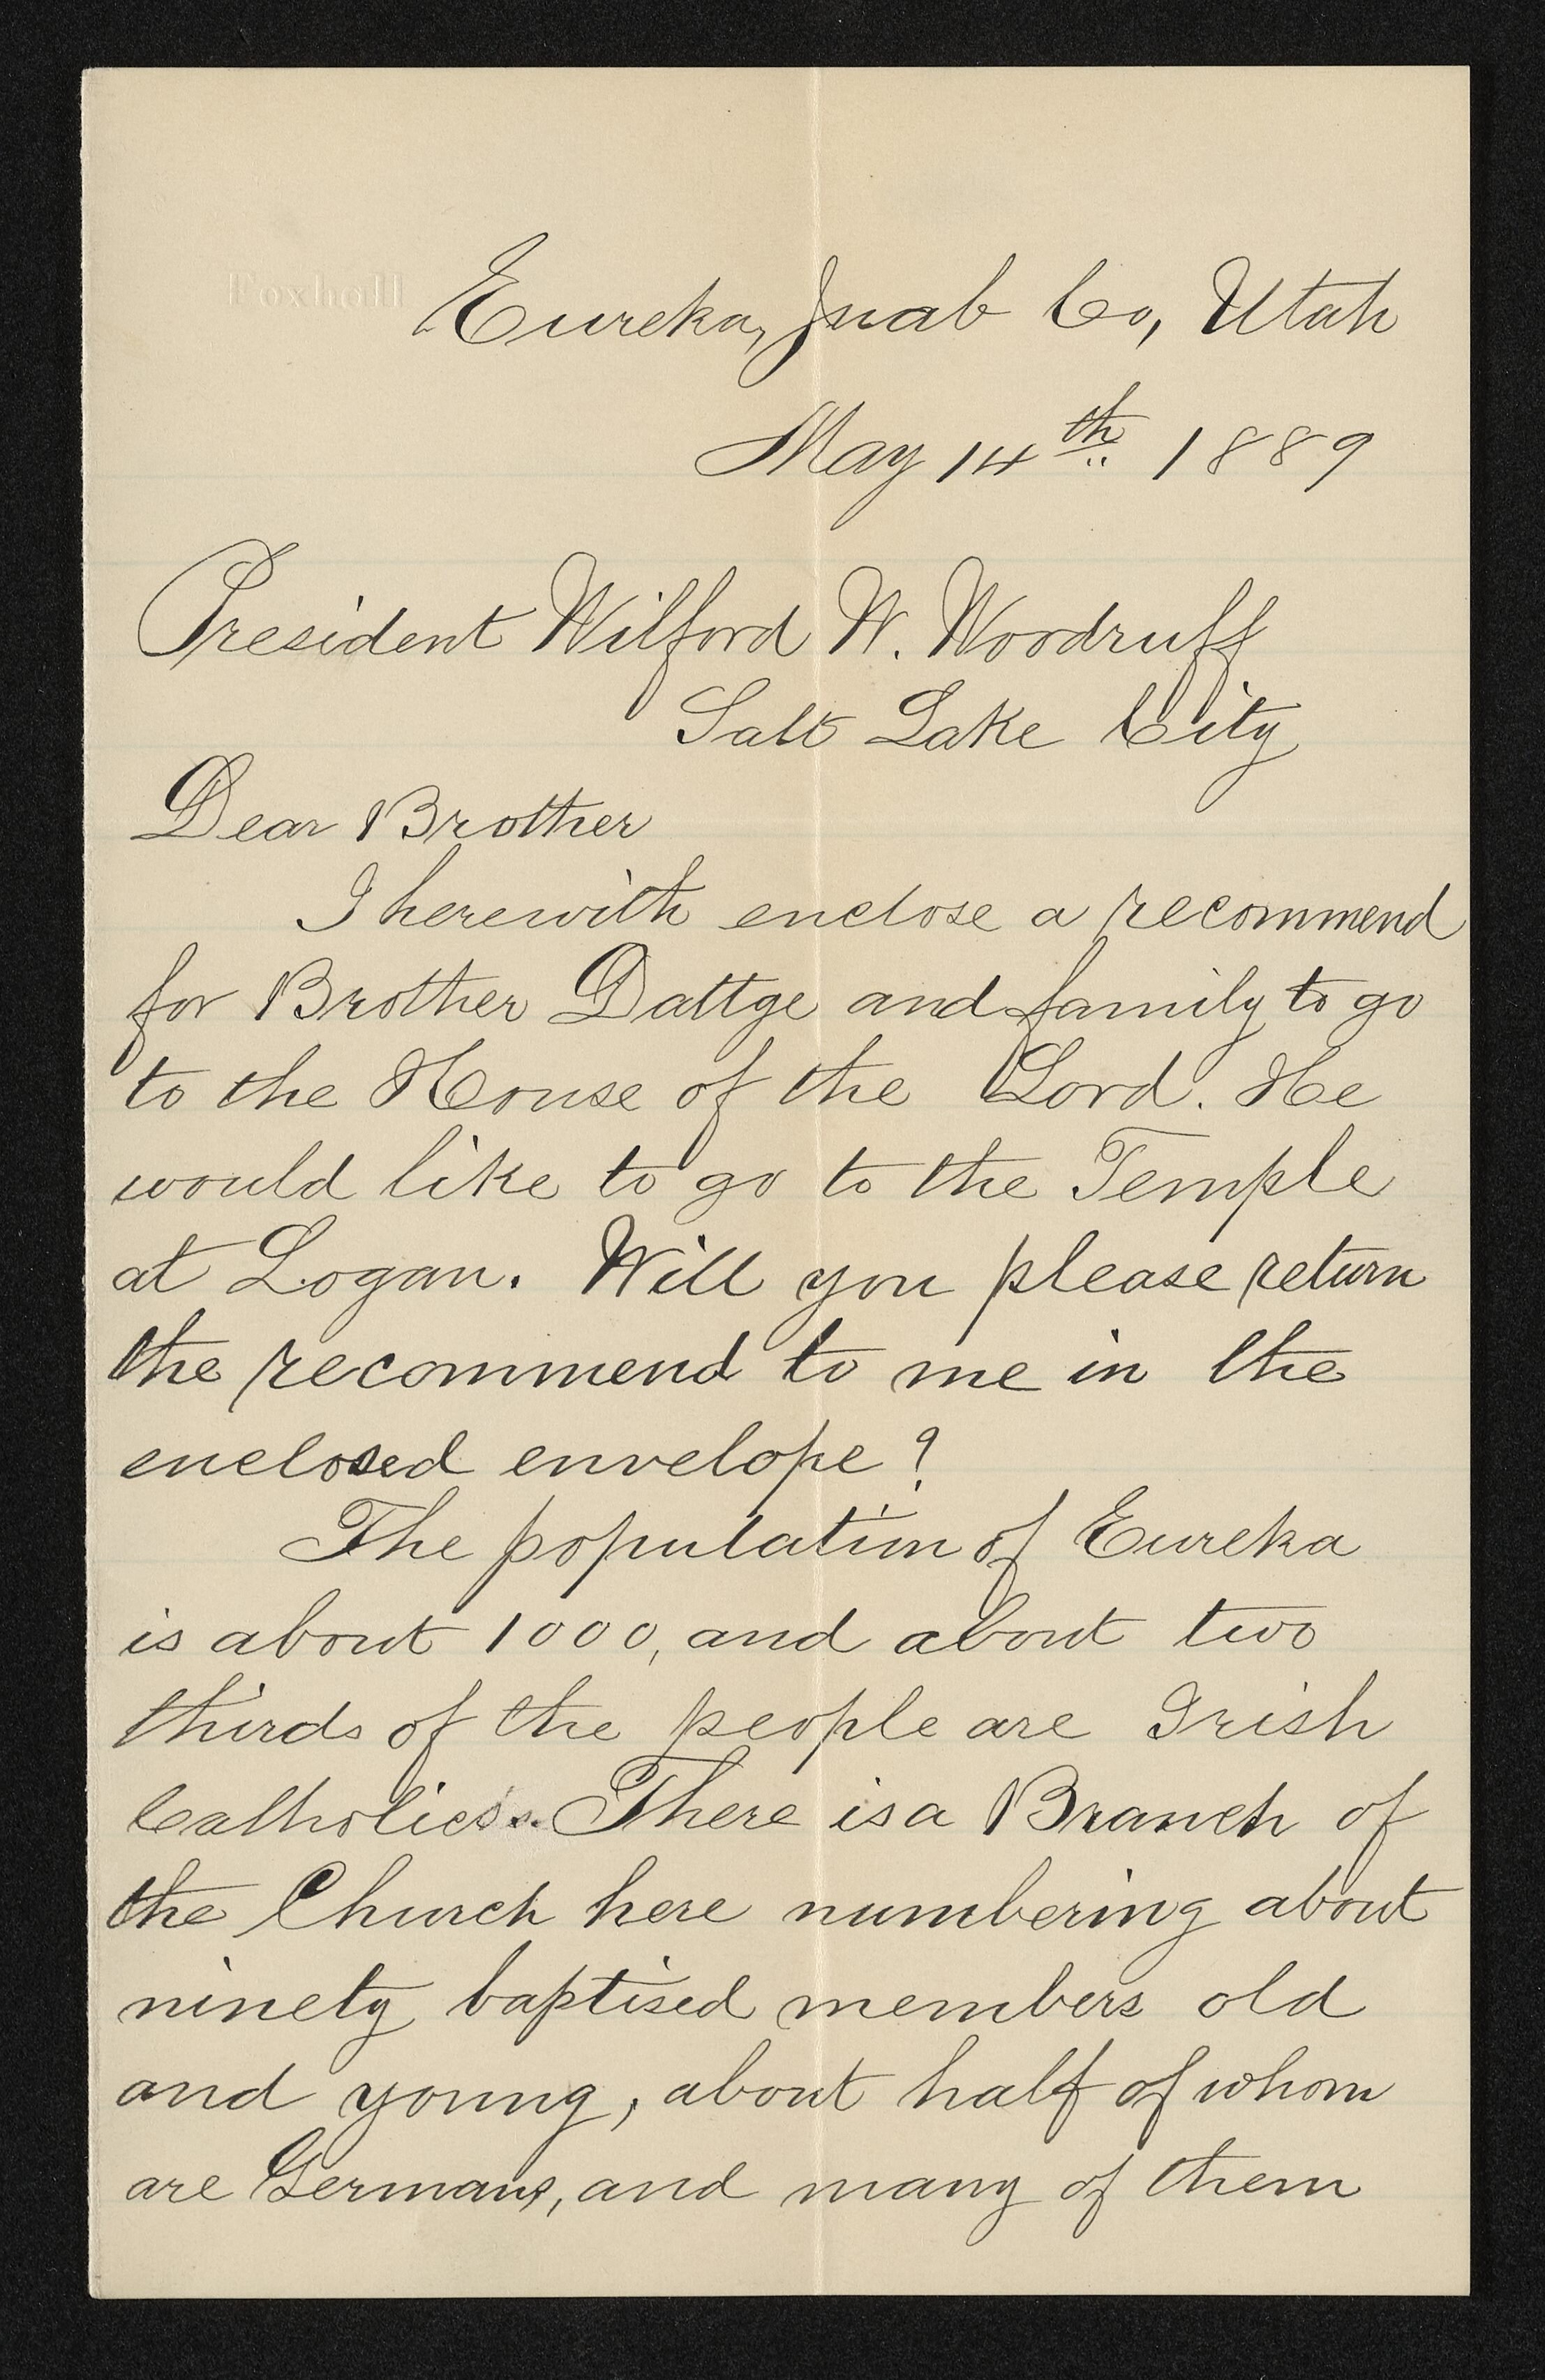 Foxhall
Eureka, Juab Co, Utah
May 14th 1889
President Wilford W. Woodruff
Salt Lake City
Dear Brother
I herewith enclose a recommend
for Brother Dattge and family to go
to the House of the Lord. He
would like to go to the Temple
at Logan. Will you please return
the recommend to me in the
enclosed envelope?
The population of Eureka
is about 1000, and about two
thirds of the people are Irish
Catholics. There is a Branch of
the Church here numbering about
ninety baptised members old
and young, about half of whom
are Germans, and many of them